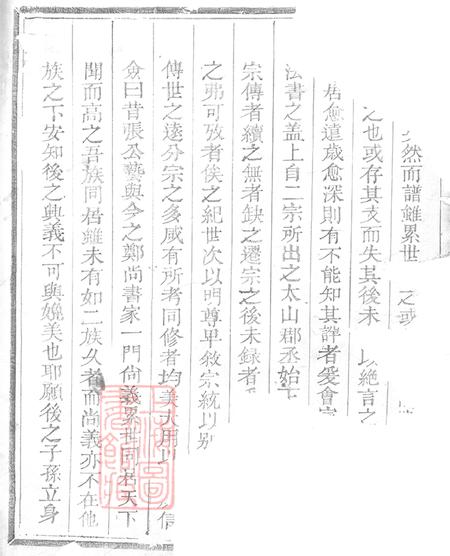 然而譜雖累世
之也或存其支而失其後未 以絕言之
居愈遠歲愈深則有不能知其詳者爰會宗
法書之蓋上自二宗所出之太山郡丞始下
宗傳者續之無者缺之遷宗之後未録者
之弗可攷者俟之紀世次以明尊卑敘宗統以別
傳世之遠分宗之多咸有所考同修者均美大用以 信
僉曰昔張公藝與今之鄭尚書家一門尚義累世同居天下
聞而高之吾族同居雖未有如二族久者而尚義亦不在他
族之下安知後之興義不可與媲美也耶願後之子孫立身